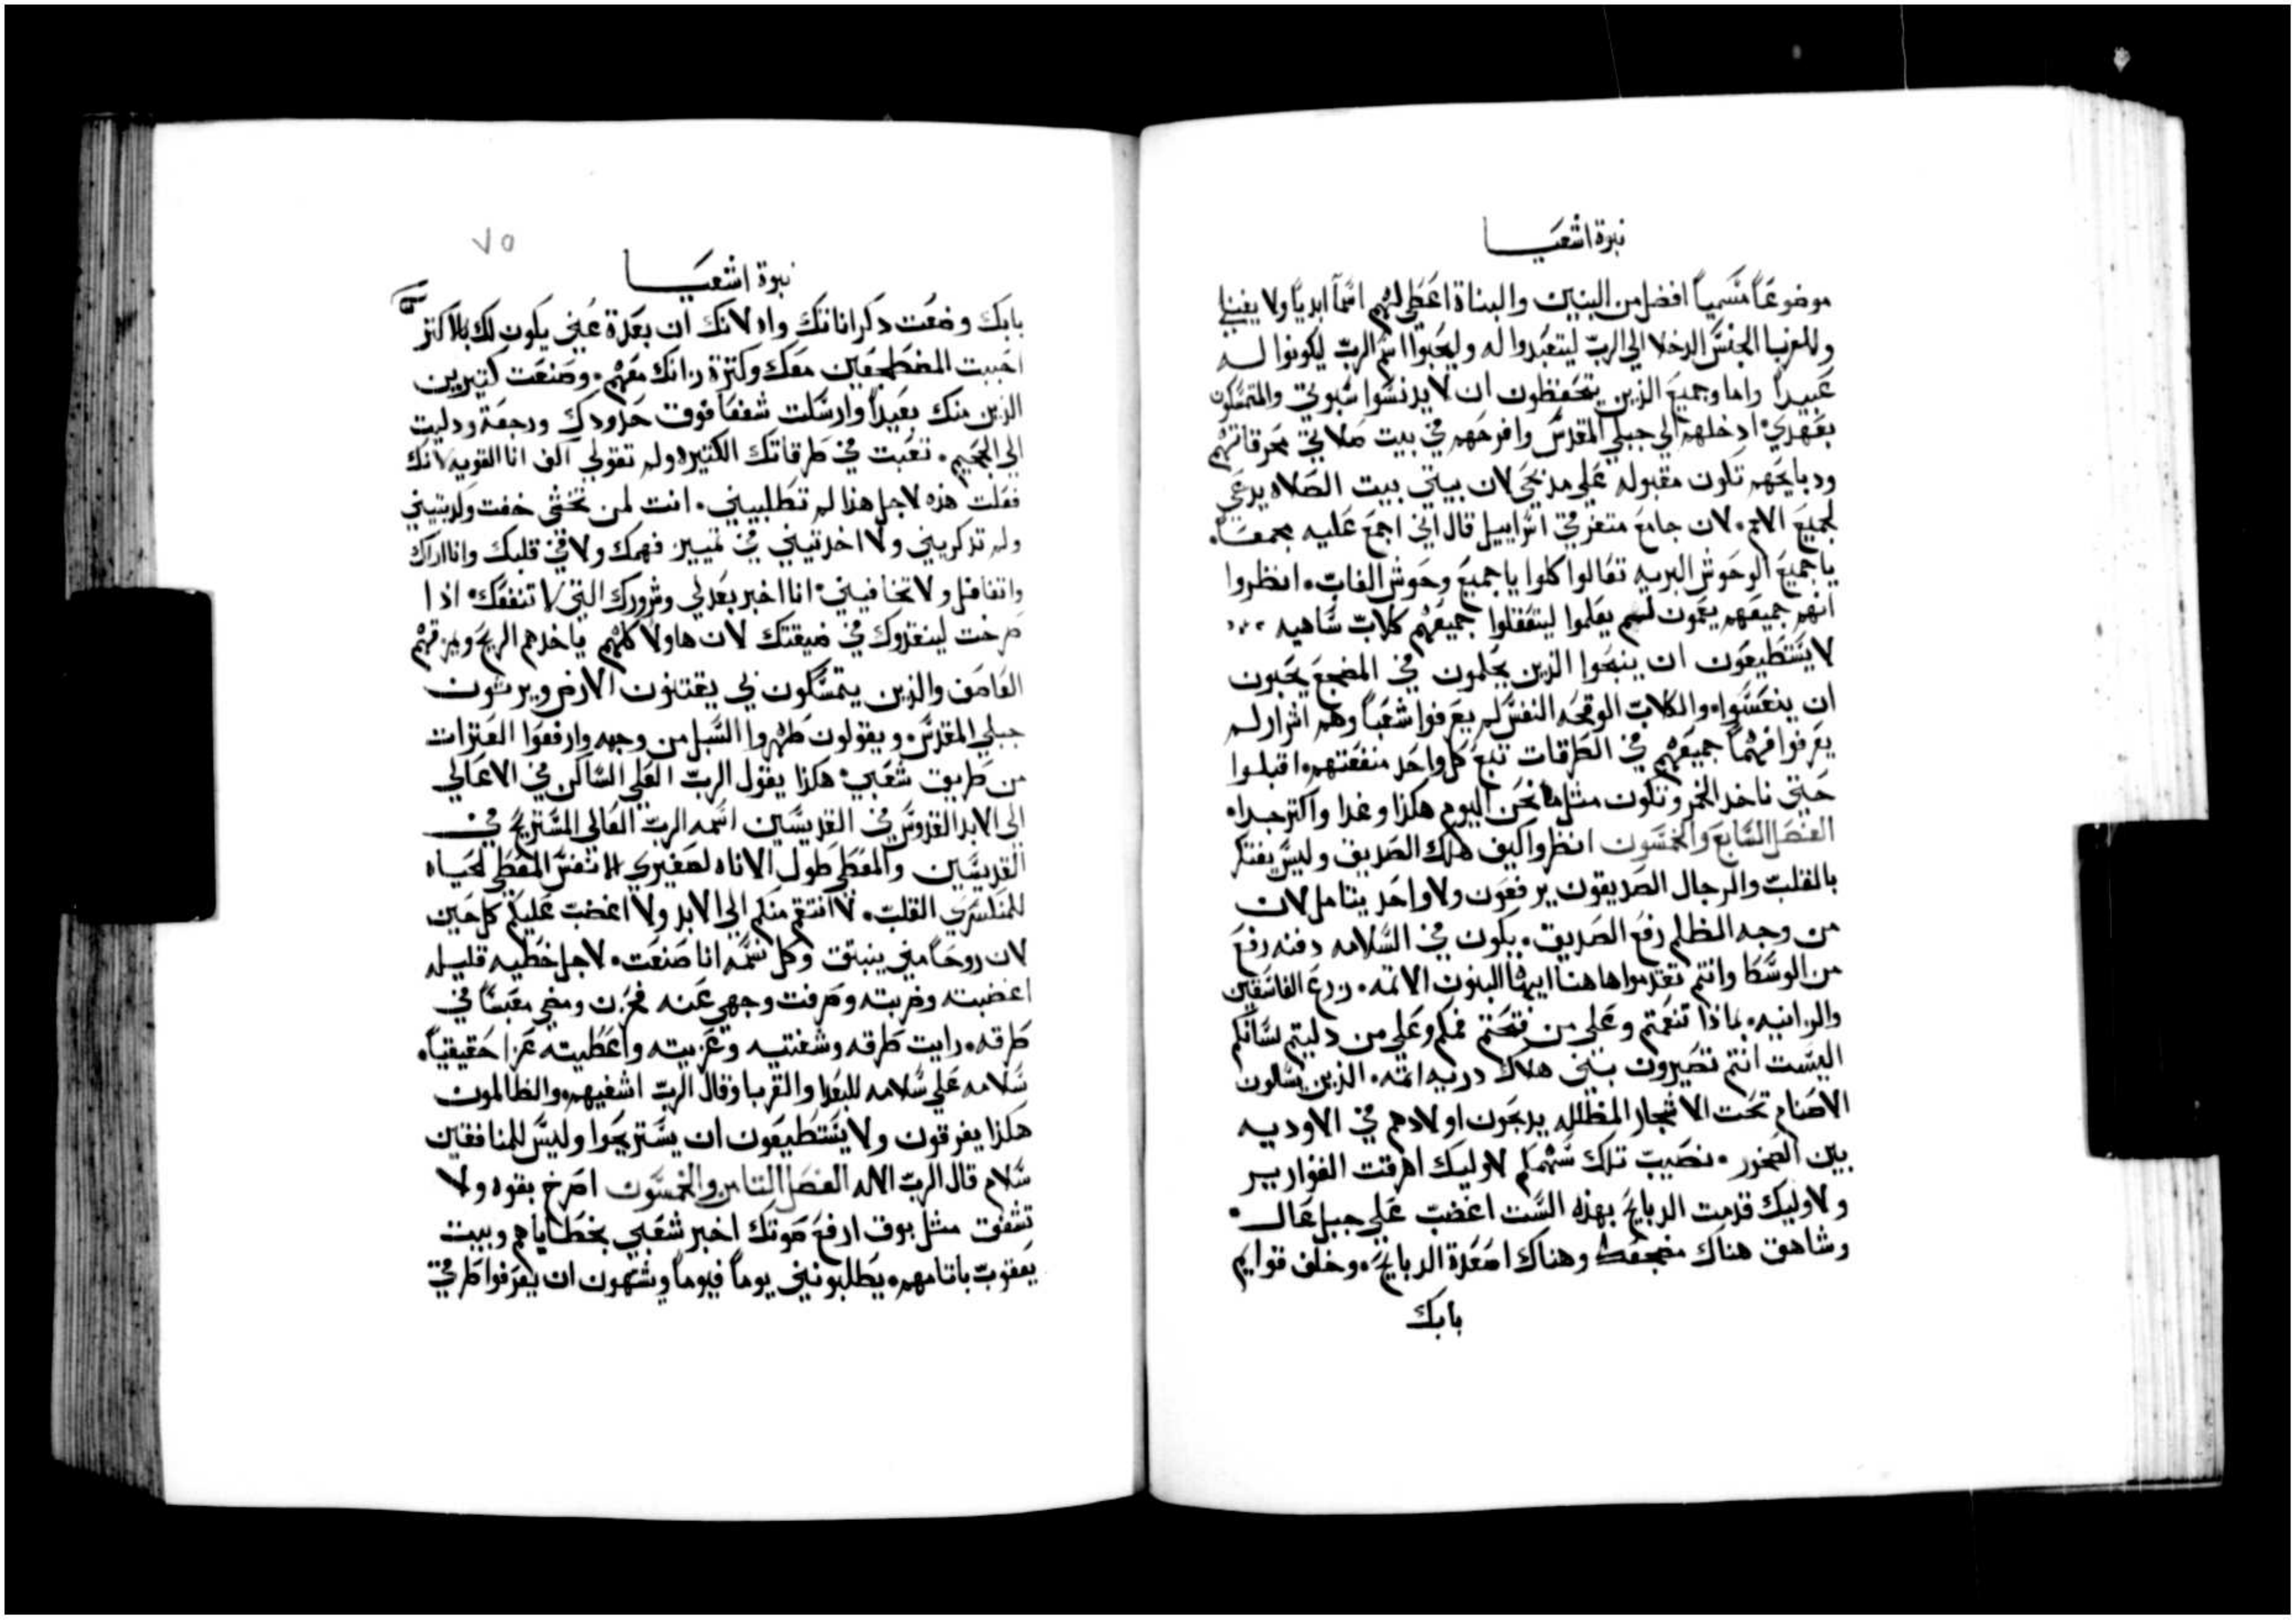 نبوة اشعيا
موضوعاً مسمياً افضل من البنين والبناة اعطي لهم اسماً ابدياً ولا يفنى
وللغربا الجنس الدخلا الي الرب ليتعبدوا له وليحبوا اسم الرب ليكونوا له
عبيداً واما وجميع الذين يتحفظون ان لا يدنسوا سبوتي والمتمسكون
بعهدي ادخلهم الي جبلي المقدس وافرحهم في بيت صلاتي محرقاتهم
ودبايحهم تكون مقبوله علي مذبحي لان بيتي بيت الصلاه يدعي
لجميع الامم لان جامع متفرقي اسراييل قال اني اجمع عليه مجمعاً
يا جميع الوحوش البريه تعالوا كلوا يا جميع وحوش الغاب انظروا
انهم جميعهم يعمون لم يعلموا ليتعقلوا جميعهم كلاب ساهيه
لا يستطيعون ان ينبحوا الذين يحلمون في المضجع يحبون
ان ينعسوا والكلاب الوقحه النفس لم يعرفوا شعباً وهم اشرار لم
يعرفوا فهماً جميعهم في الطرقات تبع كل واحد منفعتهم اقبلوا
حتي ناخد الخمر ونكون مثل ما نحن اليوم هكذا وغدا واكتر جدا
الفصل السابع والخمسون انظروا كيف هلك الصديق وليس يفتكر
بالقلب والرجال الصديقون يرفعون ولا واحد يتامل لان
من وجه الظلم رفع الصديق يكون في السلامه دفنه رفع
من الوسط وانتم تقدموا هاهنا ايها البنون الاتمه زرع الفاسقين
والزانيه بماذا تنعمتم وعلي من فتحتم فمكم وعلي من دليتم لسانكم
اليست انتم تصيرون بني هلاك دريه اتمه الذين يسالون
الاصنام تحت الاشجار المظلله يدبحون اولادهم في الاوديه
بين الصخور نصيب تلك سهمكم لاوليك اهرقت القوارير
ولاوليك قدمت الدبايح بهذه الست اغضب علي جبل عال
وشاهق هناك مضجعك وهناك اصعدة الدبايح وخلف قوايم
بابك
٧٥
نبوة اشعيا
بابك وضعت دكراناتك واد لانك ان بعدة عني يكون لك بلاكتر
احببت المضطجعين معك وكترة زناتك معهم وصنعت كتيرين
الذين منك بعيداً وارسلت شفعا فوق حدودك ورجعة ودليت
الي الجحيم تعبت في طرقاتك الكتيره ولم تقولي اكف انا القويه لانك
فعلت هذه لاجل هذا لم تطلبيني انت لمن تخشي خفت وكدبتيني
ولم تدكريني ولا اخدتيني في تمييز فهمك ولا في قلبك وانا اراك
واتغافل ولا تخافيني انا اخبر بعدلي وشرورك التي لا تنفعك اذا
صرخت لينقذوك في ضيقتك لان هاولا كلهم ياخدهم الريح ويمزقهم
العاصف والذين يتمسكون بي يقتنون الارض ويرتون
جبلي المقدس ويقولون طهروا السبل من وجهه وارفعوا العترات
من طريق شعبي هكذا يقول الرب العلي الساكن في الاعالي
الي الابد القدوس في القديسين اسمه الرب العالي المستريح في
القديسين والمعطي طول الاناه لصغيري الانفس المعطي الحياه
للمنكسري القلب لا انتقم منكم الي الابد ولا اغضب عليكم كل حين
لان روحاً مني ينبتق وكل نسمه انا صنعت لاجل خطيه قليله
اغضبته وضربته وصرفت وجهي عنه فحزن ومضي معبسا في
طرقه رايت طرقه وشفيته وعزيته واعطيته عزا حقيقياً
سلامه علي سلامه للبعدا والقربا وقال الرب اشفيهم والظالمون
هكذا يفرقون ولا يستطيعون ان يستريحوا وليس للمنافقين
سلام قال الرب الاله الفصل التامن والخمسون اصرخ بقوه ولا
تشفق مثل بوق ارفع صوتك اخبر شعبي بخطاياهم وبيت
يعقوب باتامهم يطلبونني يوماً فيوماً ويشتهون ان يعرفوا طرقي